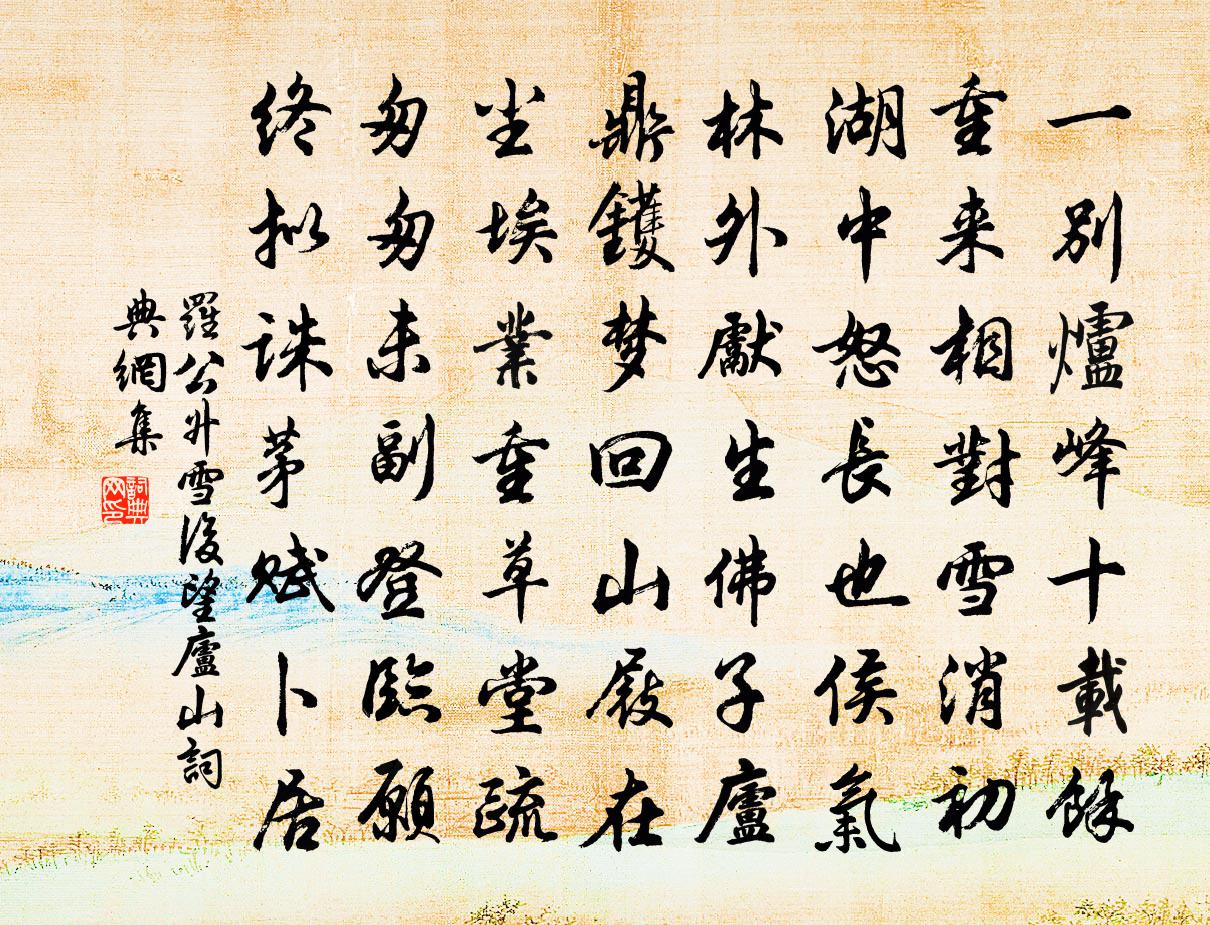 一別爐峰十載餘
重来相對雪消初
湖中怒長也侯氣
林外獻生佛子廬
鼎鑊梦回山殿在
尘埃業重草堂疏
匆匆未副登臨願
终拟诛茅赋卜居
羅公升雪後望廬山詞
典網集
詞典网印